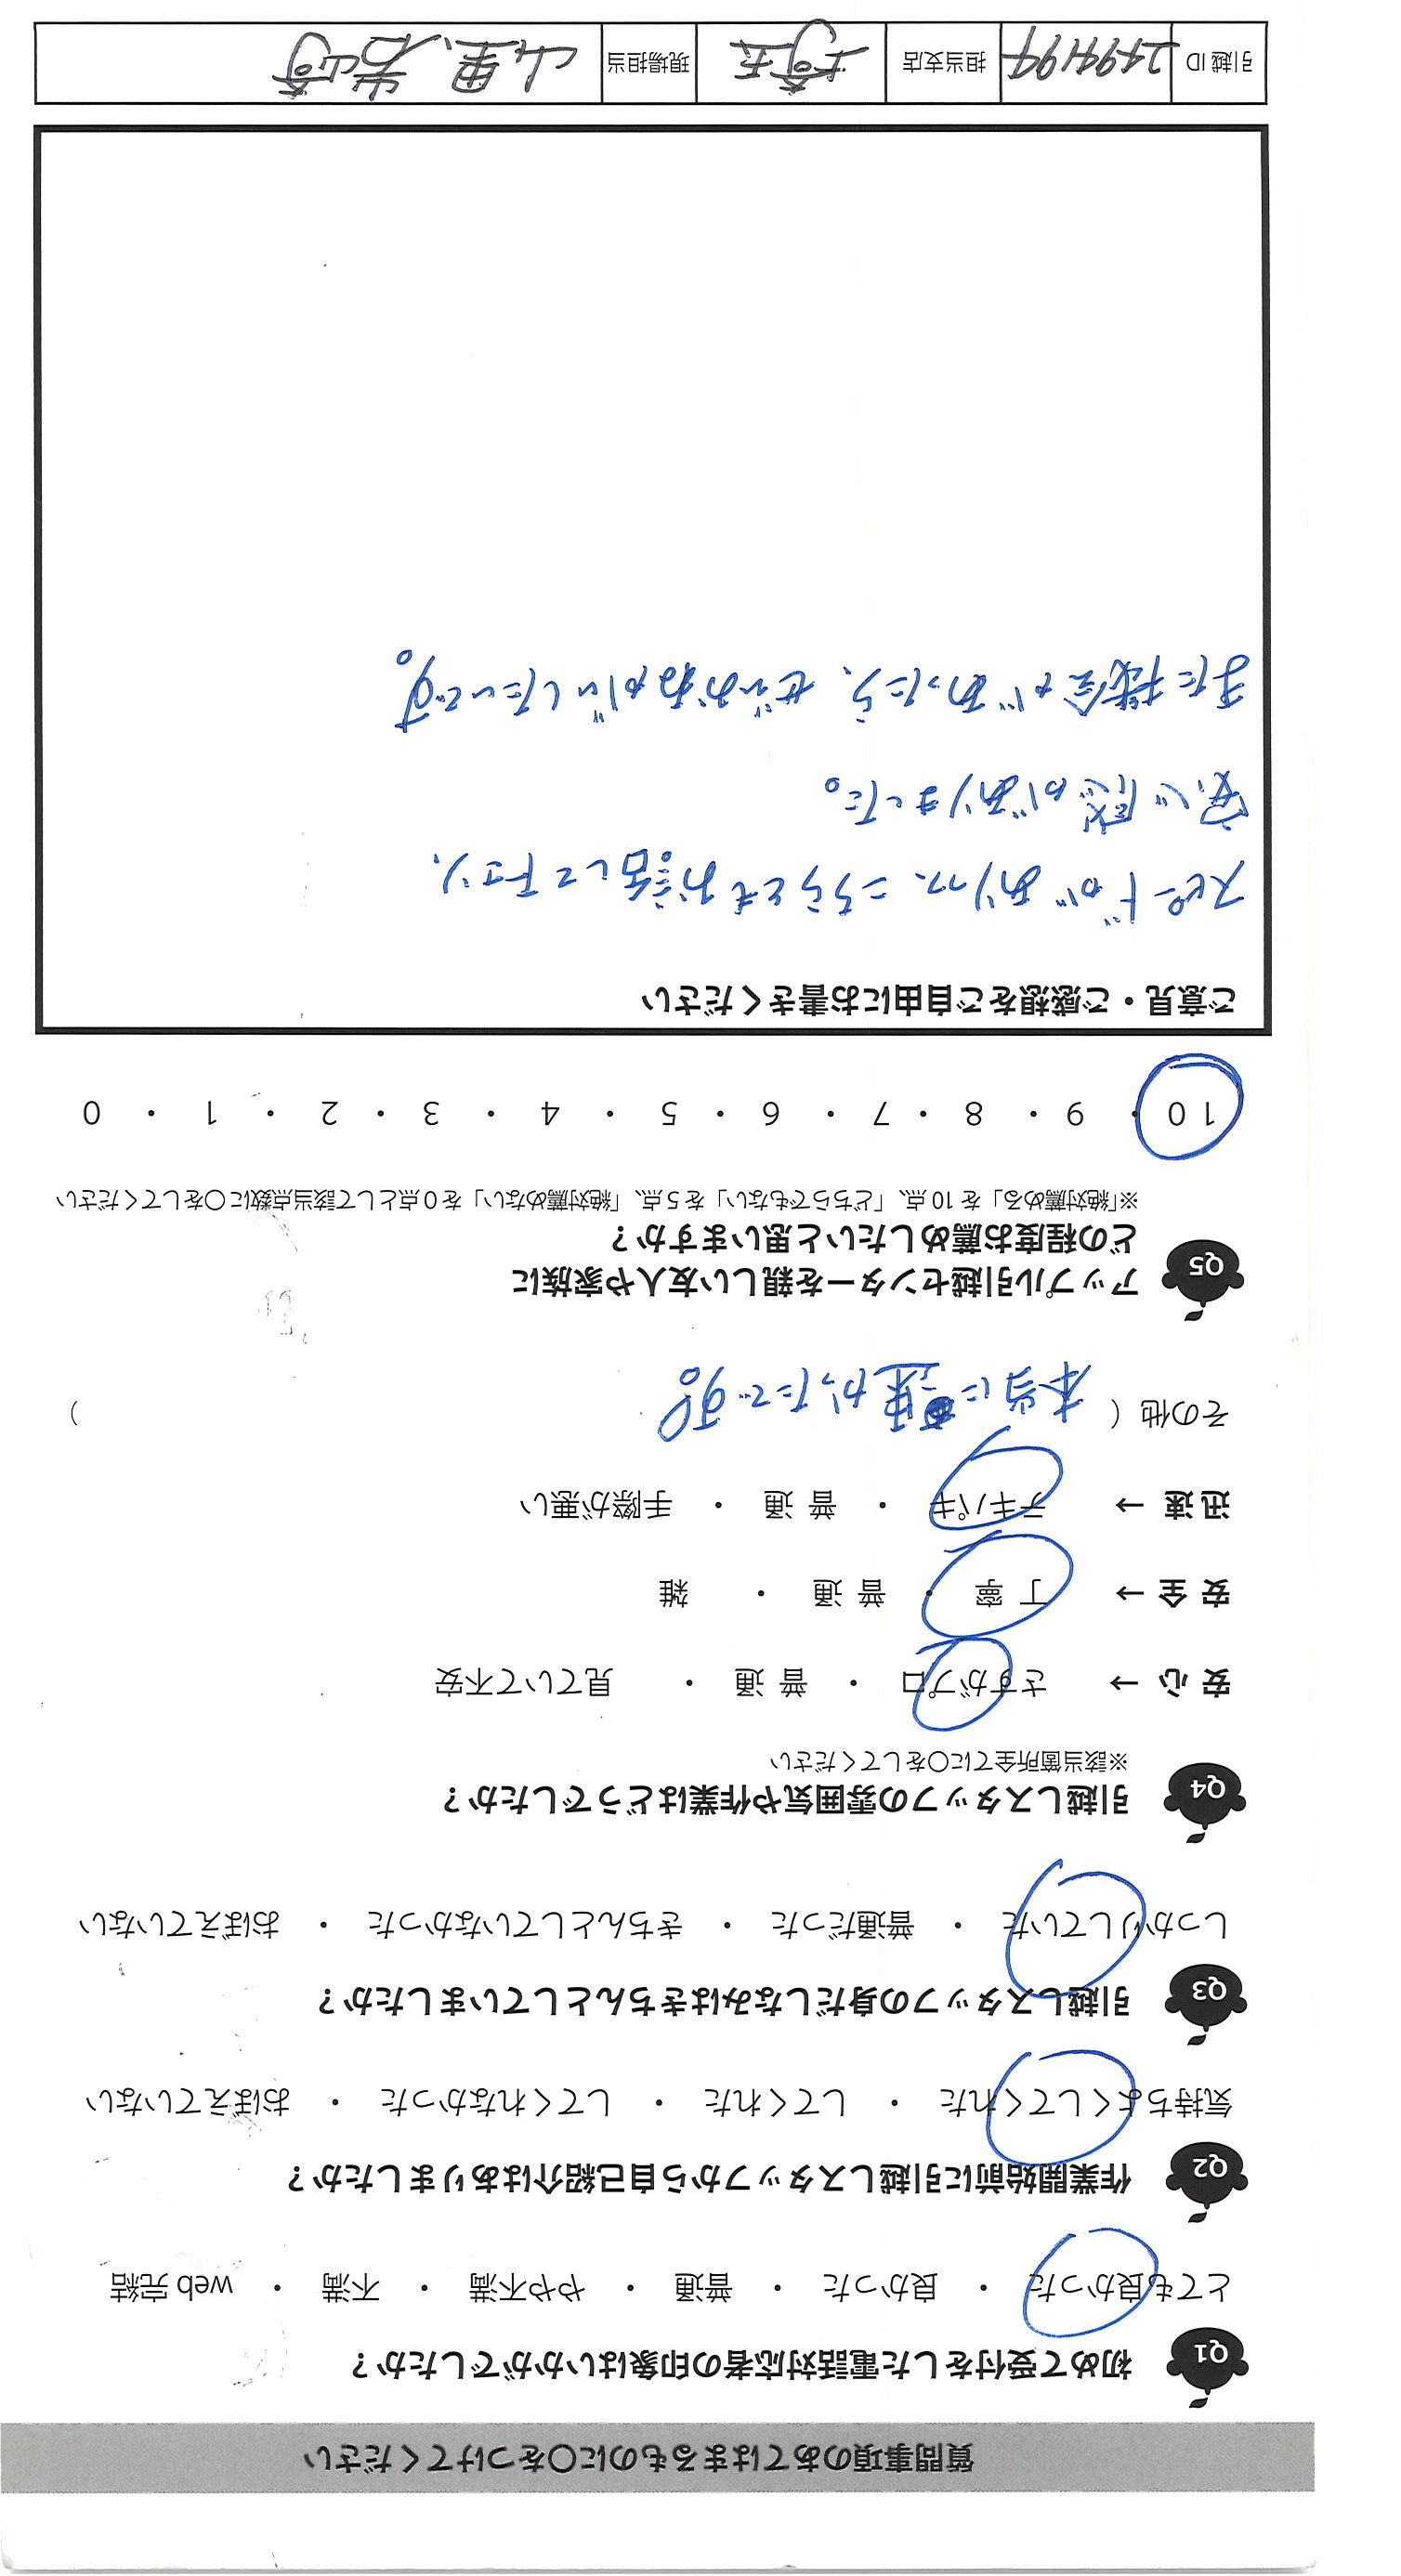 質問事項のあてはまるものに〇をつけてください
Q1 初めて受付をした電話対応者の印象はいかがでしたか？
とても良かった ・ 良かった ・ 普通 ・ やや不満 ・ 不満 ・ web 完結
Q2 作業開始前に引越しスタッフから自己紹介はありましたか？
気持ちよくしてくれた ・ してくれた ・ してくれなかった ・ おぼえていない
Q3 引越しスタッフの身だしなみはきちんとしていましたか？
しっかりしていた ・ 普通だった ・ きちんとしていなかった ・ おぼえていない
Q4 引越しスタッフの雰囲気や作業はどうでしたか？
※該当箇所全てに〇をしてください
安 心 → さすがプロ ・ 普 通 ・ 見ていて不安
安 全 → 丁 寧 ・ 普 通 ・ 雑
迅 速 → テキパキ ・ 普 通 ・ 手際が悪い
その他 ( 本当に速かったです。 )
Q5 アップル引越センターを親しい友人や家族に
どの程度お薦めしたいと思いますか？
※「絶対薦める」を 10 点、「どちらでもない」を 5 点、「絶対薦めない」を 0 点として該当点数に〇をしてください
10 ・ 9 ・ 8 ・ 7 ・ 6 ・ 5 ・ 4 ・ 3 ・ 2 ・ 1 ・ 0
ご意見・ご感想をご自由にお書きください
スピードがありつつ、こちらともお話して下さり、
安心感がありました。
また機会があったら、ぜひおねがいしたいです。
引越 ID 2494194 担当支店 埼玉 現場担当 山里、岩崎